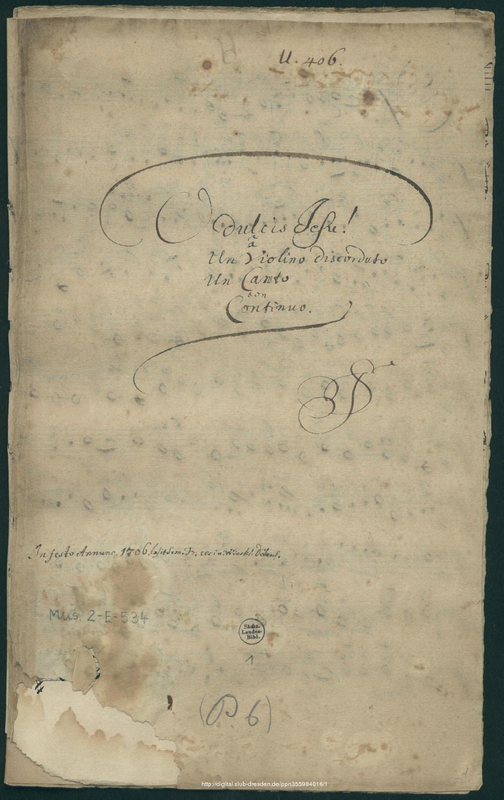 U. 406.
O dulcis Jesu!
à
Un Violino discordato
Un Canto
con
Continuo.
In festo Annunc. 1706
Mus. 2-E-534
Sächs.
Landes-
Bibl.
1
(P. 6)
http://digital.slub-dresden.de/ppn355994016/1